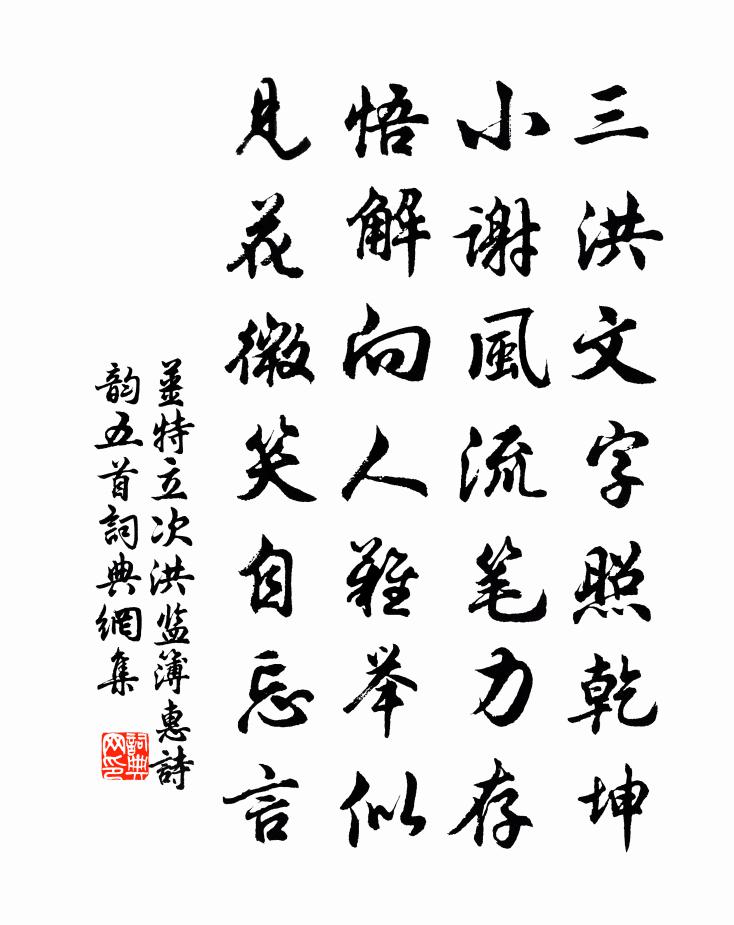 三洪文字照乾坤
小謝風流笔力存
悟解向人難举似
見花微笑自忘言
姜特立次洪监簿惠詩
韵五首詞典網集
詞典网印